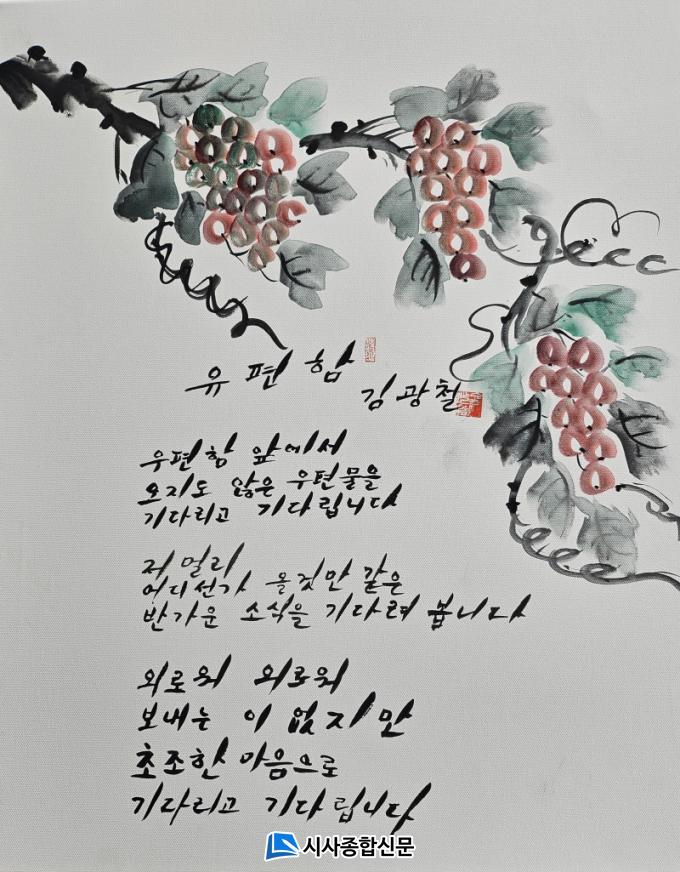 우편함
김광철
우편함 앞에서
오지도 않은 우편물을
기다리고 기다립니다
저 멀리
어디선가 올것만 같은
반가운 소식을 기다려 봅니다
외로워 외로워
보내는 이 없지만
초조한 마음으로
기다리고 기다립니다
시사종합신문